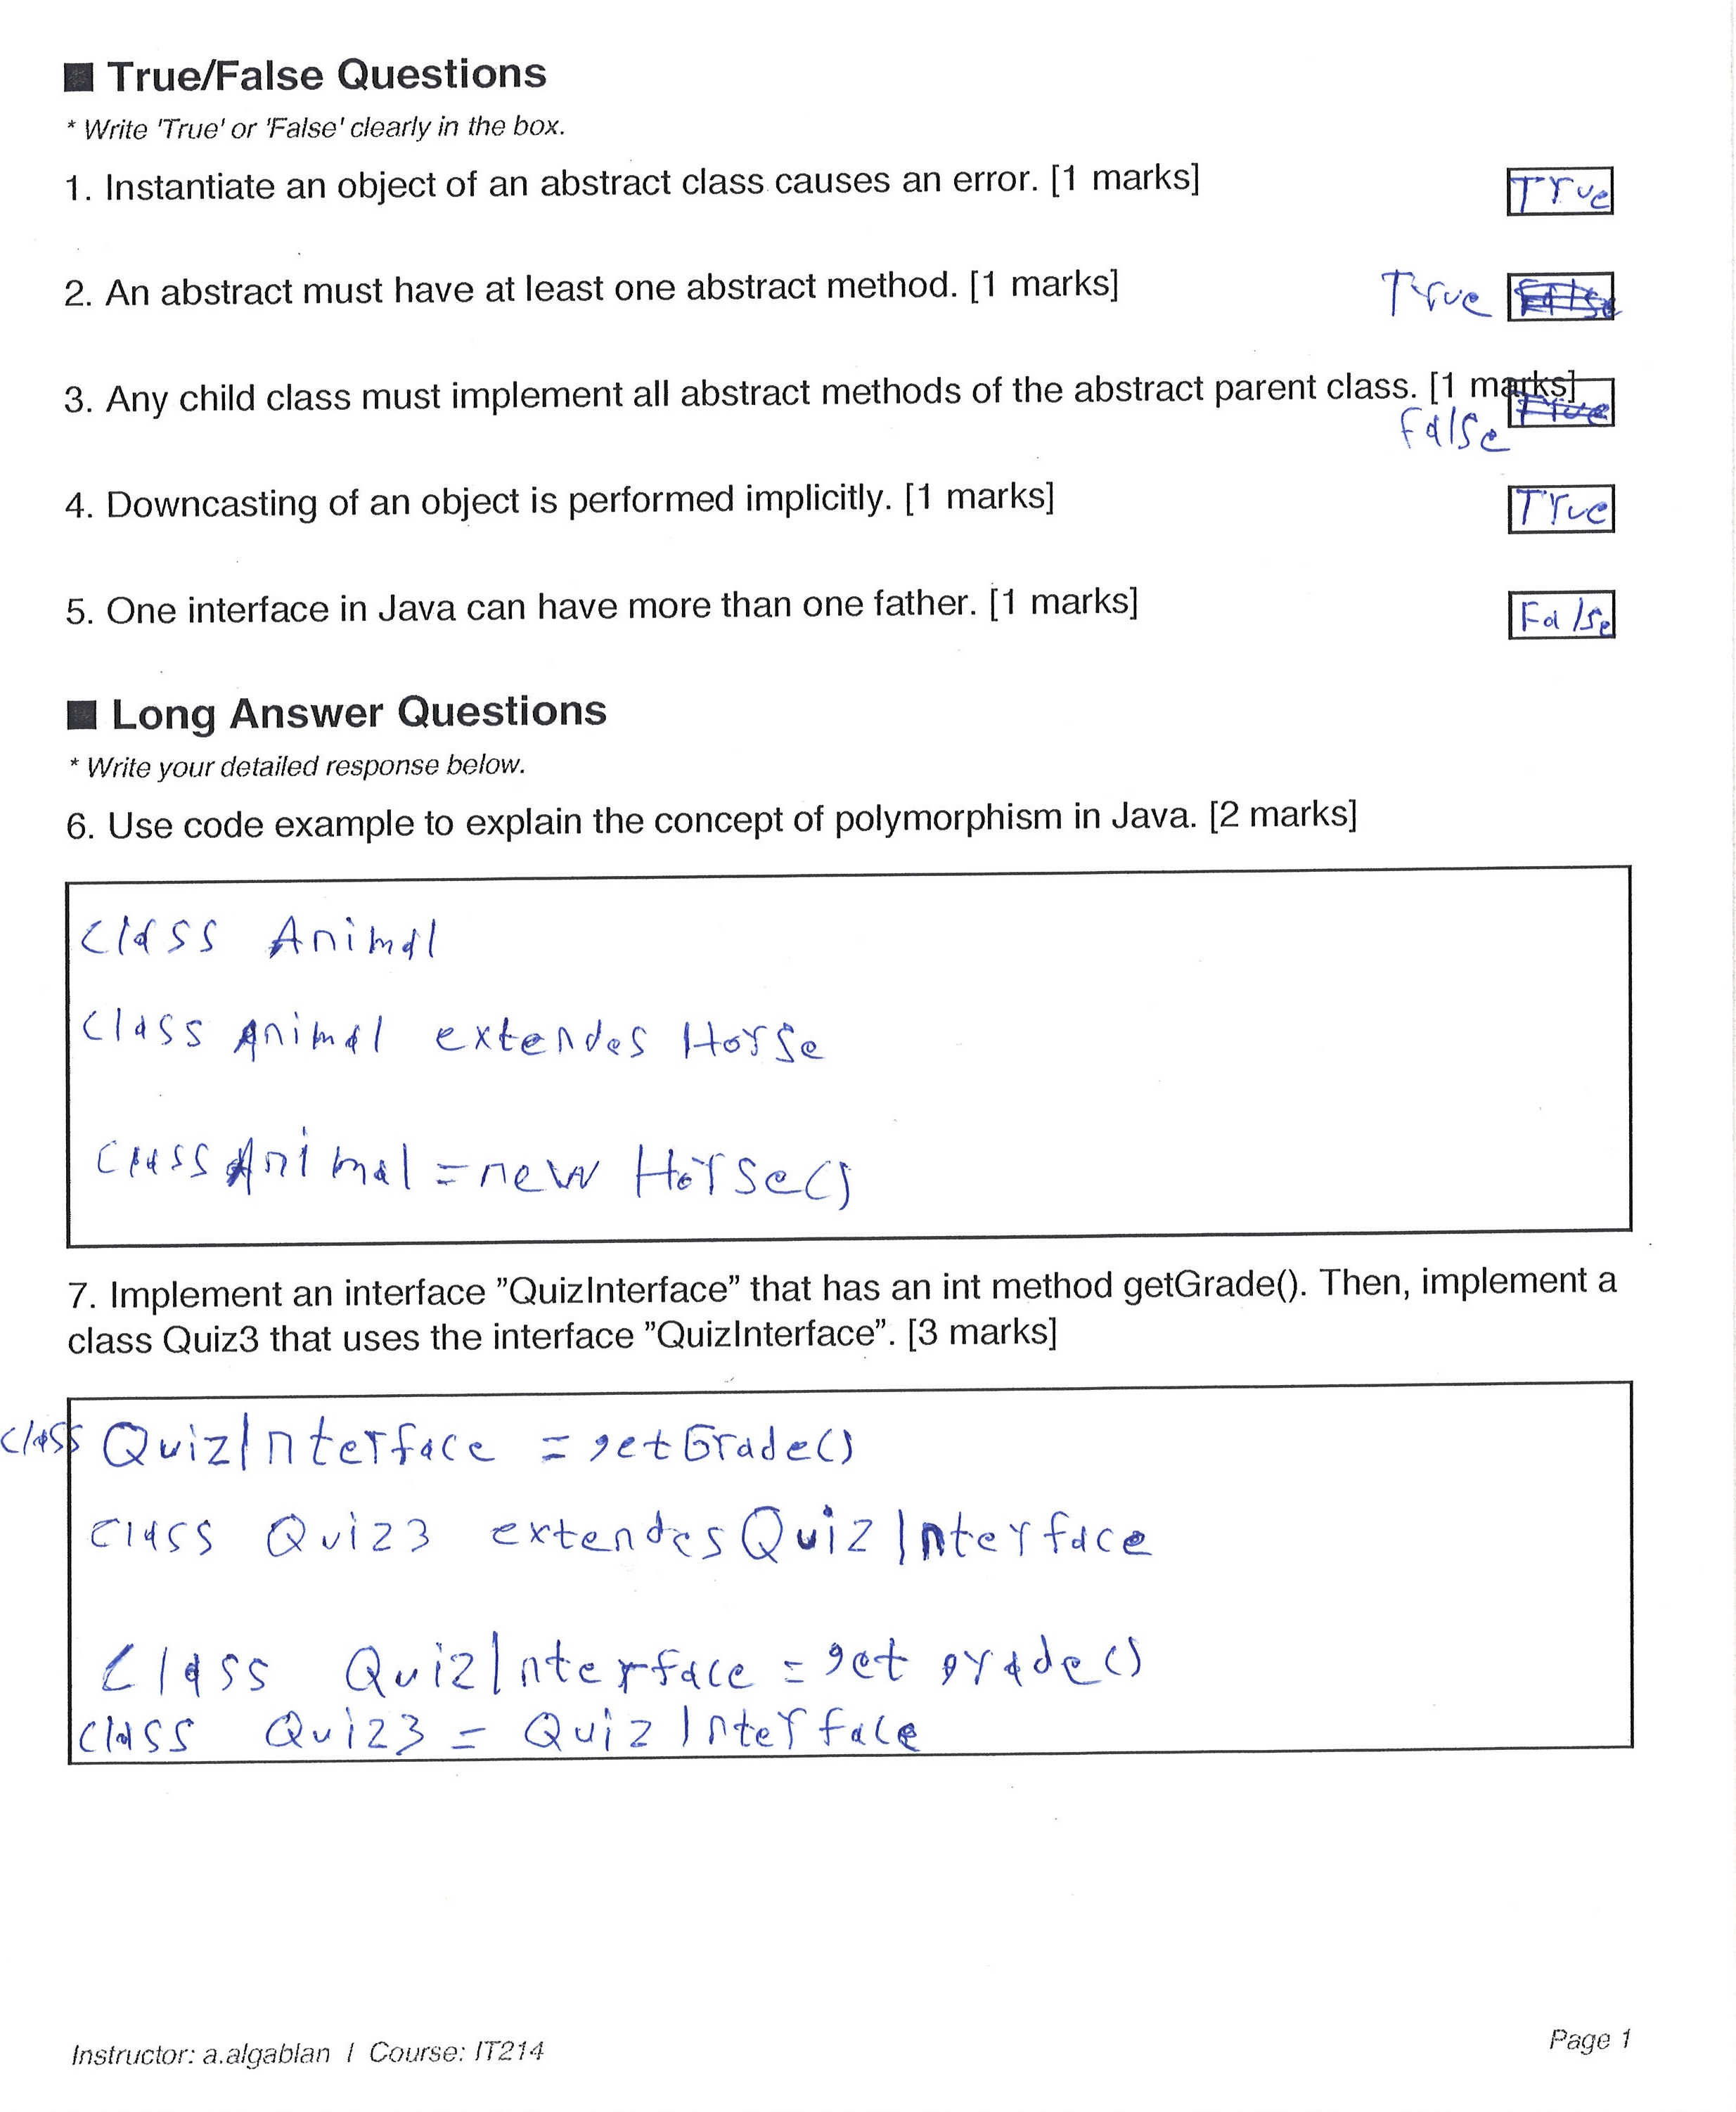 ■ True/False Questions
* Write 'True' or 'False' clearly in the box.
1. Instantiate an object of an abstract class causes an error. [1 marks] True
2. An abstract must have at least one abstract method. [1 marks] True False
3. Any child class must implement all abstract methods of the abstract parent class. [1 marks] True
False
4. Downcasting of an object is performed implicitly. [1 marks] True
5. One interface in Java can have more than one father. [1 marks] False
■ Long Answer Questions
* Write your detailed response below.
6. Use code example to explain the concept of polymorphism in Java. [2 marks]
class Animal
class Animal extendes Horse
class Animal = new Horse()
7. Implement an interface "QuizInterface" that has an int method getGrade(). Then, implement a
class Quiz3 that uses the interface "QuizInterface". [3 marks]
class QuizInterface = getGrade()
class Quiz3 extendes QuizInterface
class QuizInterface = get grade()
class Quiz3 = QuizInterface
Instructor: a.algablan / Course: IT214
Page 1